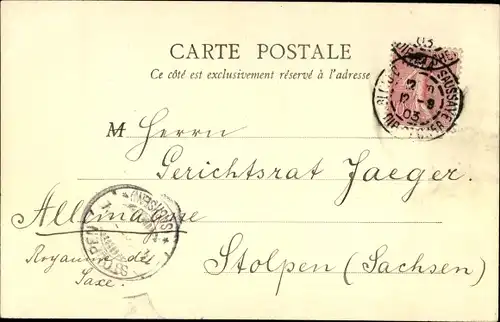 CARTE POSTALE
Ce côté est exclusivement réservé à l'adresse
M Herrn
Gerichtsrat Jaeger.
Allemagne
Royaume de
Saxe.
Stolpen (Sachsen)
03
12 - 9
03
STOLPEN
(SACHSEN)